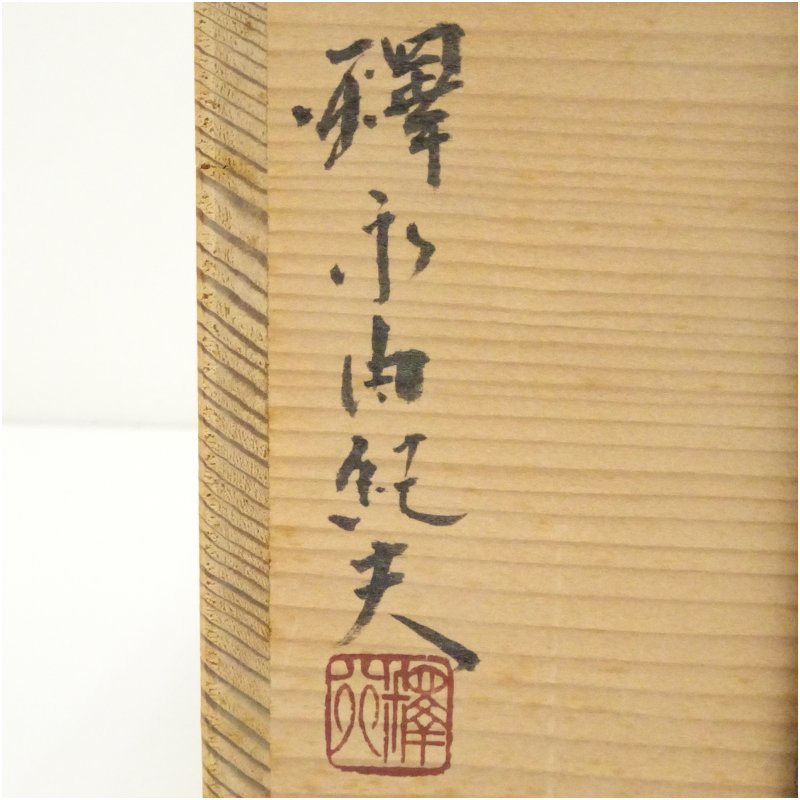 釋永由紀夫